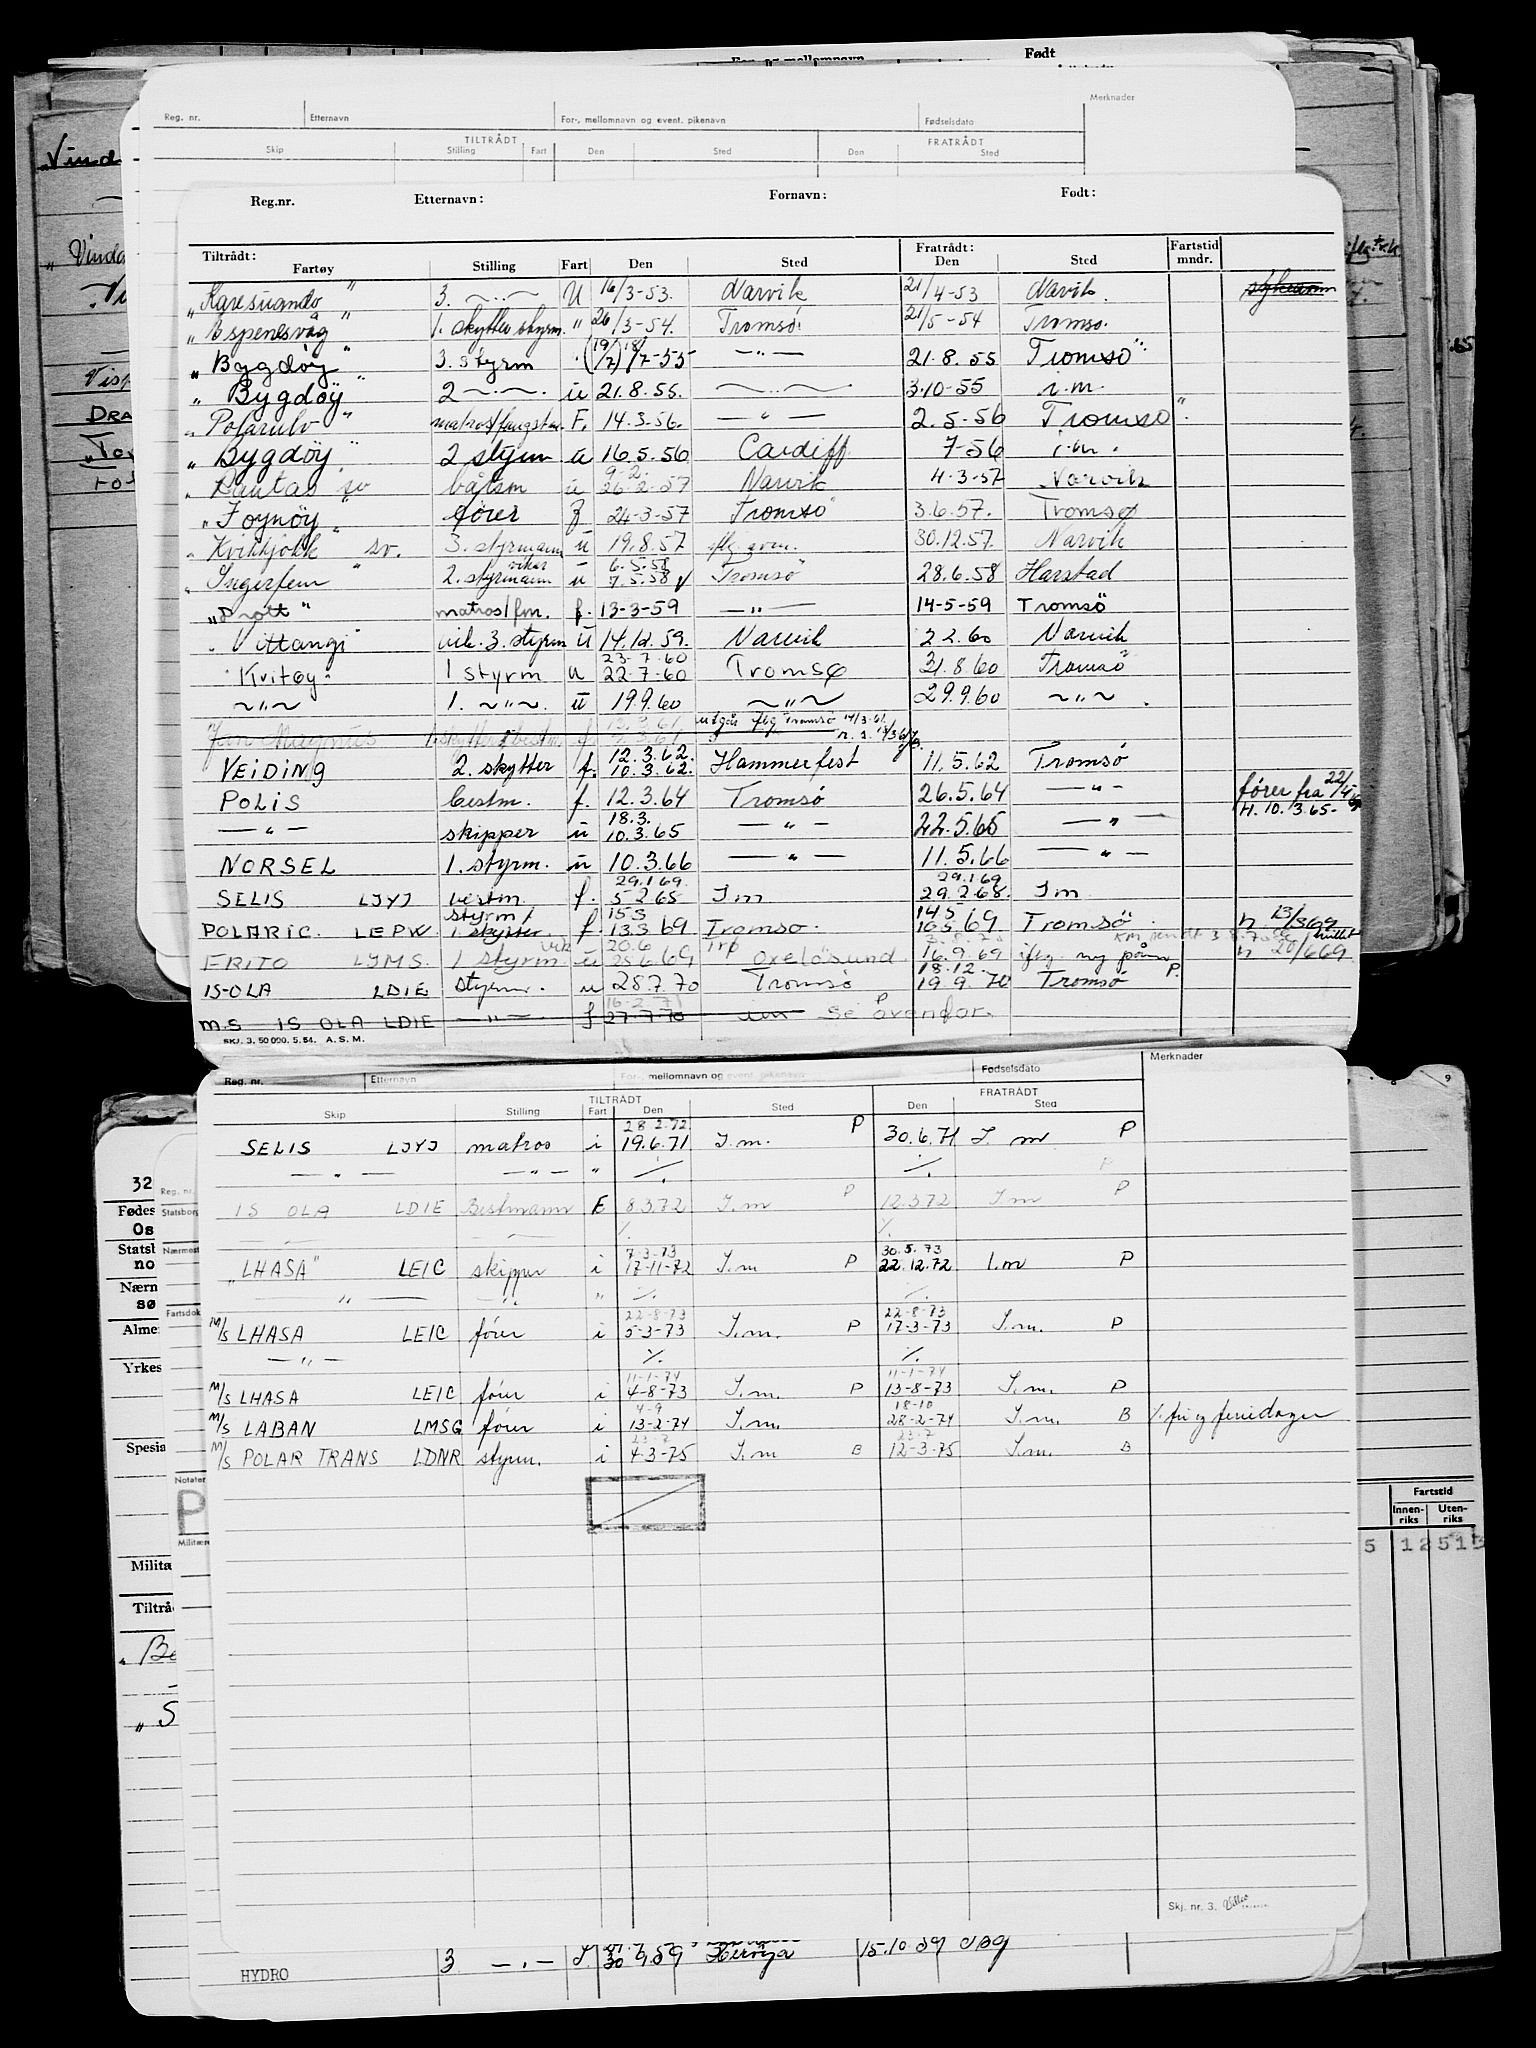 Født
Merknader
Reg. nr. Etternavn For-, mellomnavn og event. pikenavn Fødselsdato
TILTRÅDT FRATRÅDT
Skip Stilling Fart Den Sted Den Sted
Reg.nr. Etternavn: Fornavn: Født:
Tiltrådt: Fratrådt: Fartstid
Fartøy Stilling Fart Den Sted Den Sted mndr.
„Karesuando" 3. —„— U 16/3-53. Narvik 21/4-53 Narvik.
„Espenesvåg" 1. skytter styrm. " 26/3-54. Tromsö. 21/5-54 Tromsö.
„Bygdöy" 3. styrm (19/7) 18/7-55 —"— 21.8.55 Tromsö
„Bygdöy" 2 —.— u 21.8.55. —.— 3.10-55 i.m.
„Polarulv" matros/fangstm. F. 14.3.56. —"— 2.5-56 Tromsö.
„Bygdöy" 2 styrm u 16.5.56 Cardiff 7-56 i.m.
9-2.
„Rautas" sv båtsm u 26-2-57 Narvik 4-3-57 Narvik
„Foynöy" fører f 24-3-57 Tromsö 3.6.57. Tromsø
„Kvikkjokk" sv. 3. styrmann u 19.8.57 30.12.57. Narvik
vikar 6.5.58
„Ingerfem" 2. styrmann u 7.5.58 Tromsö 28.6.58 Harstad
„Drott" matros/fm. f. 13-3-59 —„— 14-5-59 Tromsö
„Vittangi" vik. 3. styrm u 14.12.59. Narvik 2.2.60 Narvik
23-7-60
„Kvitøy" 1 styrm u 22-7-60 Tromsø 31.8.60 Tromsö
~"~ 1. ~"~. u 19.9.60 ~"~ 29.9.60 ~"~
"Jan Magnus f.
12.3.62.
VEIDING 2. skytter f. 10.3.62. Hammerfest 11.5.62 Tromsö
POLIS bestm. f. 12.3.64 Tromsö 26.5.64 —"— fører fra 22/4
18.3. H. 10.3.65
—"— skipper u 10.3.65 —"— 22.5.65 —"—
NORSEL 1. styrm. u 10.3.66 —"— 11.5.66 —"—
29.1.69 29.1.69
SELIS LJYJ bestm f. 5.2.65 I m 29.2.68. I m
styrm/ 15.3 14.5
POLARIC. LEPW 1. skytter f. 13.3.69 Tromsø. 16.5.69 Tromsö. h 13/3 69
vik 20.6
FRITO LJMS. 1 styrm. u 28.6.69 Trp oxelösund 16.9.69 h 20/6 69
18.12.
IS-OLA LDIE styrm. u 28.7.70 Tromsö 19.9.70 Tromsö P.
16-2-71
m.s IS OLA LDIE —"— f 27.7.70 im se ovenfor.
SKJ. 3. 50 000. 5. 54. A. S. M.
Merknader
Reg. nr. Etternavn For-, mellomnavn og event. pikenavn Fødselsdato
TILTRÅDT FRATRÅDT
Skip Stilling Fart Den Sted Den Sted
28 2.72
SELIS LJYJ matros i 19.6.71 I.m. P 30.6.71 I m P
—"— —"— " ./. ./. P
IS OLA LDIE Bestmann F 8.3.72 I.m P 12.3.72 I.m P
./. ./.
7-3-73 30.5.73
„LHASA" LEIC skipper i 17-11-72 I.m P 22.12.72 I.m P
—„— —„— " ./. ./.
22-8-73 22-8-73
M/S LHASA LEIC fører i 5-3-73 I.m. P 17-3-73 I.m. P
—„— ./. ./.
11-1-74 11-1-74
M/S LHASA LEIC fører i 4-8-73 I.m. P 13-8-73 I.m. P
4-9 18-10
M/S LABAN LMSG fører i 13-2-74 I.m. 28-2-74 I.m. B ./. fri og feriedager
23-7 23-7
M/S POLAR TRANS LDNR styrm. i 4-3-75 I.m B 12-3-75 I.m. B
Skj. nr. 3.
HYDRO 3. —.— Herøya 15.10.59
„Vind
„Vinda
DRA
32
Reg. nr.
Fødes
Statsborg
Os
Statsb
Nærmest
no
Nærn
sø
Fartsdok
Alme
Yrkes
Spesia
Notater
P
Militære
Milita
Tiltrå
„Be
„S
Fartstid
Innen-riks Uten-riks
5 12 513